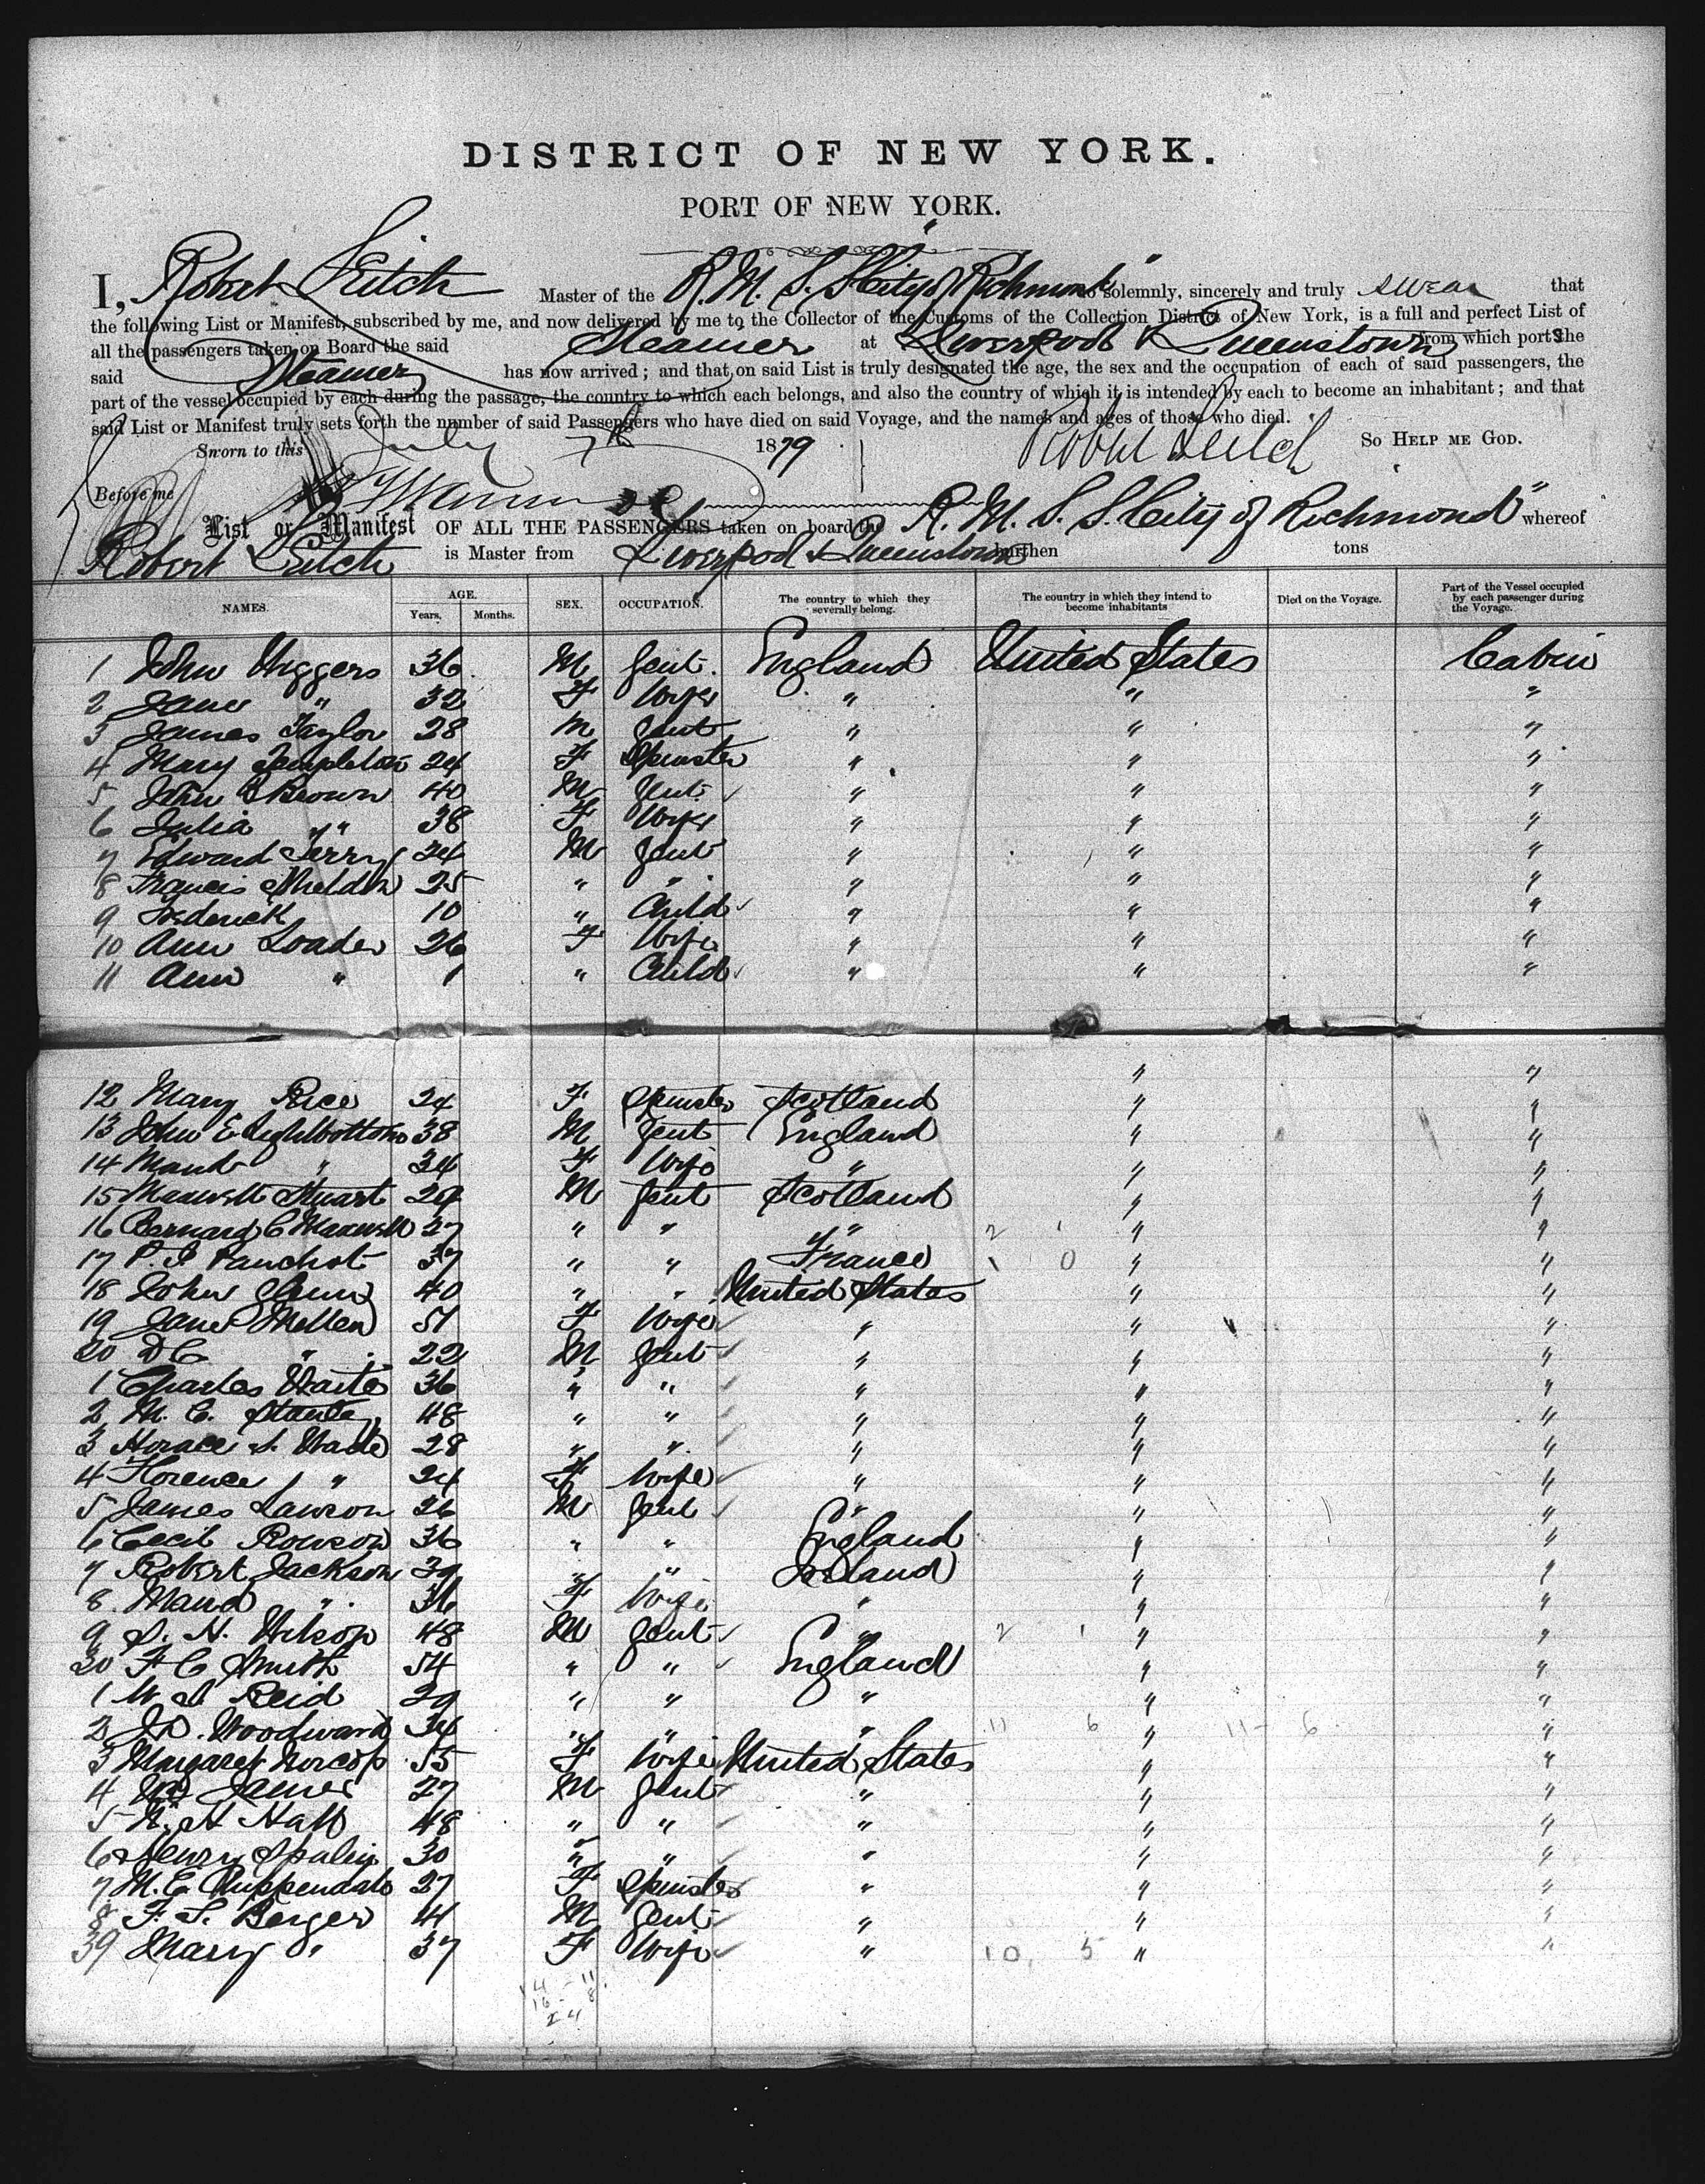 DISTRICT OF NEW YORK.
PORT OF NEW YORK.
I, Robert Leitch Master of the R. M. S. S. "City of Richmond" do solemnly, sincerely and truly swear that
the following List or Manifest, subscribed by me, and now delivered by me to the Collector of the Customs of the Collection District of New York, is a full and perfect List of
all the passengers taken on Board the said Steamer at Liverpool & Queenstown from which ports the
said Steamer has now arrived; and that on said List is truly designated the age, the sex and the occupation of each of said passengers, the
part of the vessel occupied by each during the passage, the country to which each belongs, and also the country of which it is intended by each to become an inhabitant; and that
said List or Manifest truly sets forth the number of said Passengers who have died on said Voyage, and the names and ages of those who died.
Sworn to this July 7th 1879 Robert Leitch So HELP ME GOD.
Before me
List or Manifest OF ALL THE PASSENGERS taken on board the R. M. S. S. "City of Richmond" whereof
Robert Leitch is Master from Liverpool & Queenstown burthen tons
NAMES. AGE. Years, Months. SEX. OCCUPATION. The country to which they severally belong. The country in which they intend to become inhabitants Died on the Voyage. Part of the Vessel occupied by each passenger during the Voyage.
1 John Wiggers 36 M Gent. England United States Cabin
2 Jane " 32 F Wife " " "
3 James Taylor 28 M Gent " " "
4 Mary Templeton 24 F Spinster " " "
5 John Brown 40 M Gent. " " "
6 Julia " " 38 F Wife " " "
7 Edward Terry 24 M Gent " " "
8 Francis Sheldon 25 " " " " "
9 Frederick 10 " Child " " "
10 Ann Loader 26 F Wife " " "
11 Ann " 1 " Child " " "
12 Mary Rice 24 F Spinster Scotland " "
13 John E Lightbottom 38 M Gent England " "
14 Maud " 34 F Wife " " "
15 Maxwell Stuart 29 M Gent Scotland " "
16 Bernard C Maxwell 27 " " " " "
17 P. J. Panchot 37 " " France " "
18 John Glenn 40 " " United States " "
19 Jane Mellen 51 F Wife " " "
20 D C " 22 M Gent " " "
1 Charles Waite 36 " " " " "
2 M. C. Stanley 48 " " " " "
3 Horace S. Wade 28 " " " " "
4 Florence " 24 F Wife " " "
5 James Lawson 26 M Gent " " "
6 Cecil Rowson 36 " " England " "
7 Robert Jackson 39 " " Ireland " "
8 Maud " 36 F Wife " " "
9 S. H. Wilson 48 M Gent " " "
30 F C Smith 54 " " England " "
1 W. S. Reid 29 " " " " "
2 J D. Woodward 34 " " " " "
3 Margaret 55 F Wife United States " "
4 James 27 M Gent " " "
5 N. H Hall 48 " " " " "
6 Henry 30 " " " " "
7 M. E Chippendale 27 F Spinster " " "
8 F. S. Berger 44 M Gent " " "
39 Mary " 37 F Wife " 10 5 " "